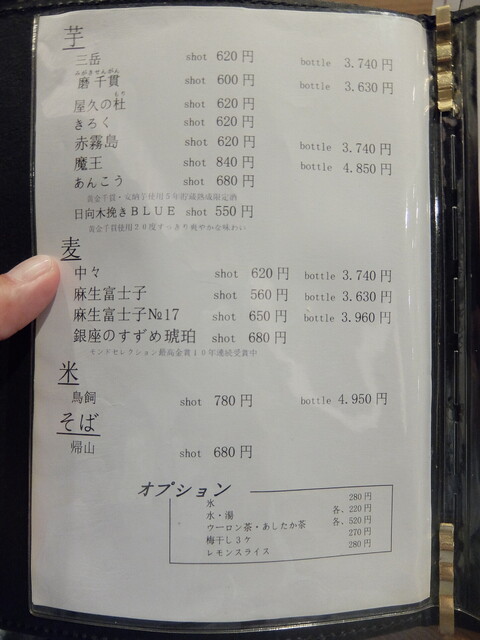 芋
三岳 shot 620円 bottle 3.740円
ふかきせんがん
磨千貫 shot 600円 bottle 3.630円
もり
屋久の杜 shot 620円
きろく shot 620円
赤霧島 shot 620円 bottle 3.740円
魔王 shot 840円 bottle 4.850円
あんこう shot 680円
黄金千貫・安納芋使用5年貯蔵熟成限定酒
日向木挽きBLUE shot 550円
黄金千貫使用20度すっきり爽やかな味わい
麦
中々 shot 620円 bottle 3.740円
麻生富士子 shot 560円 bottle 3.630円
麻生富士子№17 shot 650円 bottle 3.960円
銀座のすずめ琥珀 shot 680円
モンドセレクション最高金賞10年連続受賞中
米
鳥飼 shot 780円 bottle 4.950円
そば
帰山 shot 680円
オプション
氷 280円
水・湯 各、220円
ウーロン茶・あしたか茶 各、520円
梅干し3ケ 270円
レモンスライス 280円